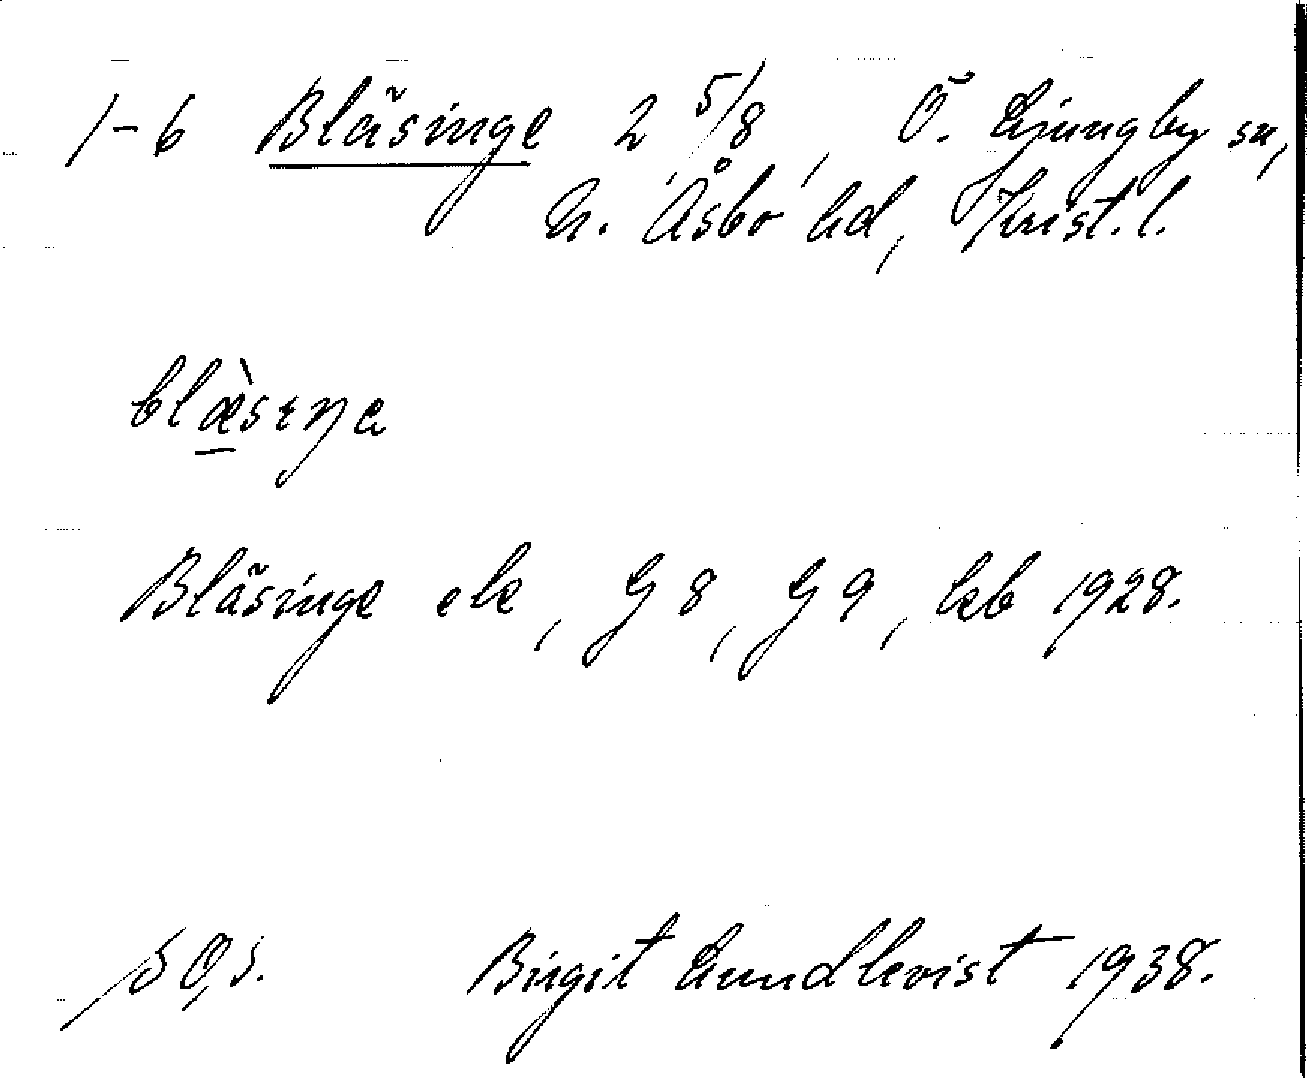 1-6 Bläsinge 2 5/8, Ö. Ljungby sn,
N. Åsbo hd, Krist. l.
blæ̀sıŋa
Bläsinge ek, G 8, G 9, kb 1928.
Birgit Lundkvist 1938.